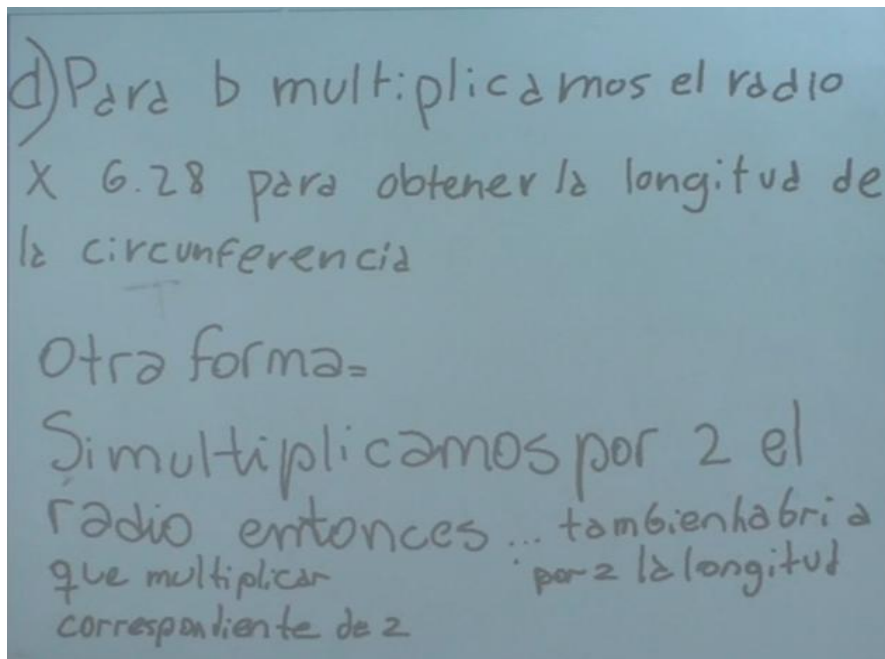 d) Para b multiplicamos el radio
X 6.28 para obtener la longitud de
la circunferencia
Otra forma=
Si multiplicamos por 2 el
radio entonces... tambien habria
que multiplicar por 2 la longitud
correspondiente de 2